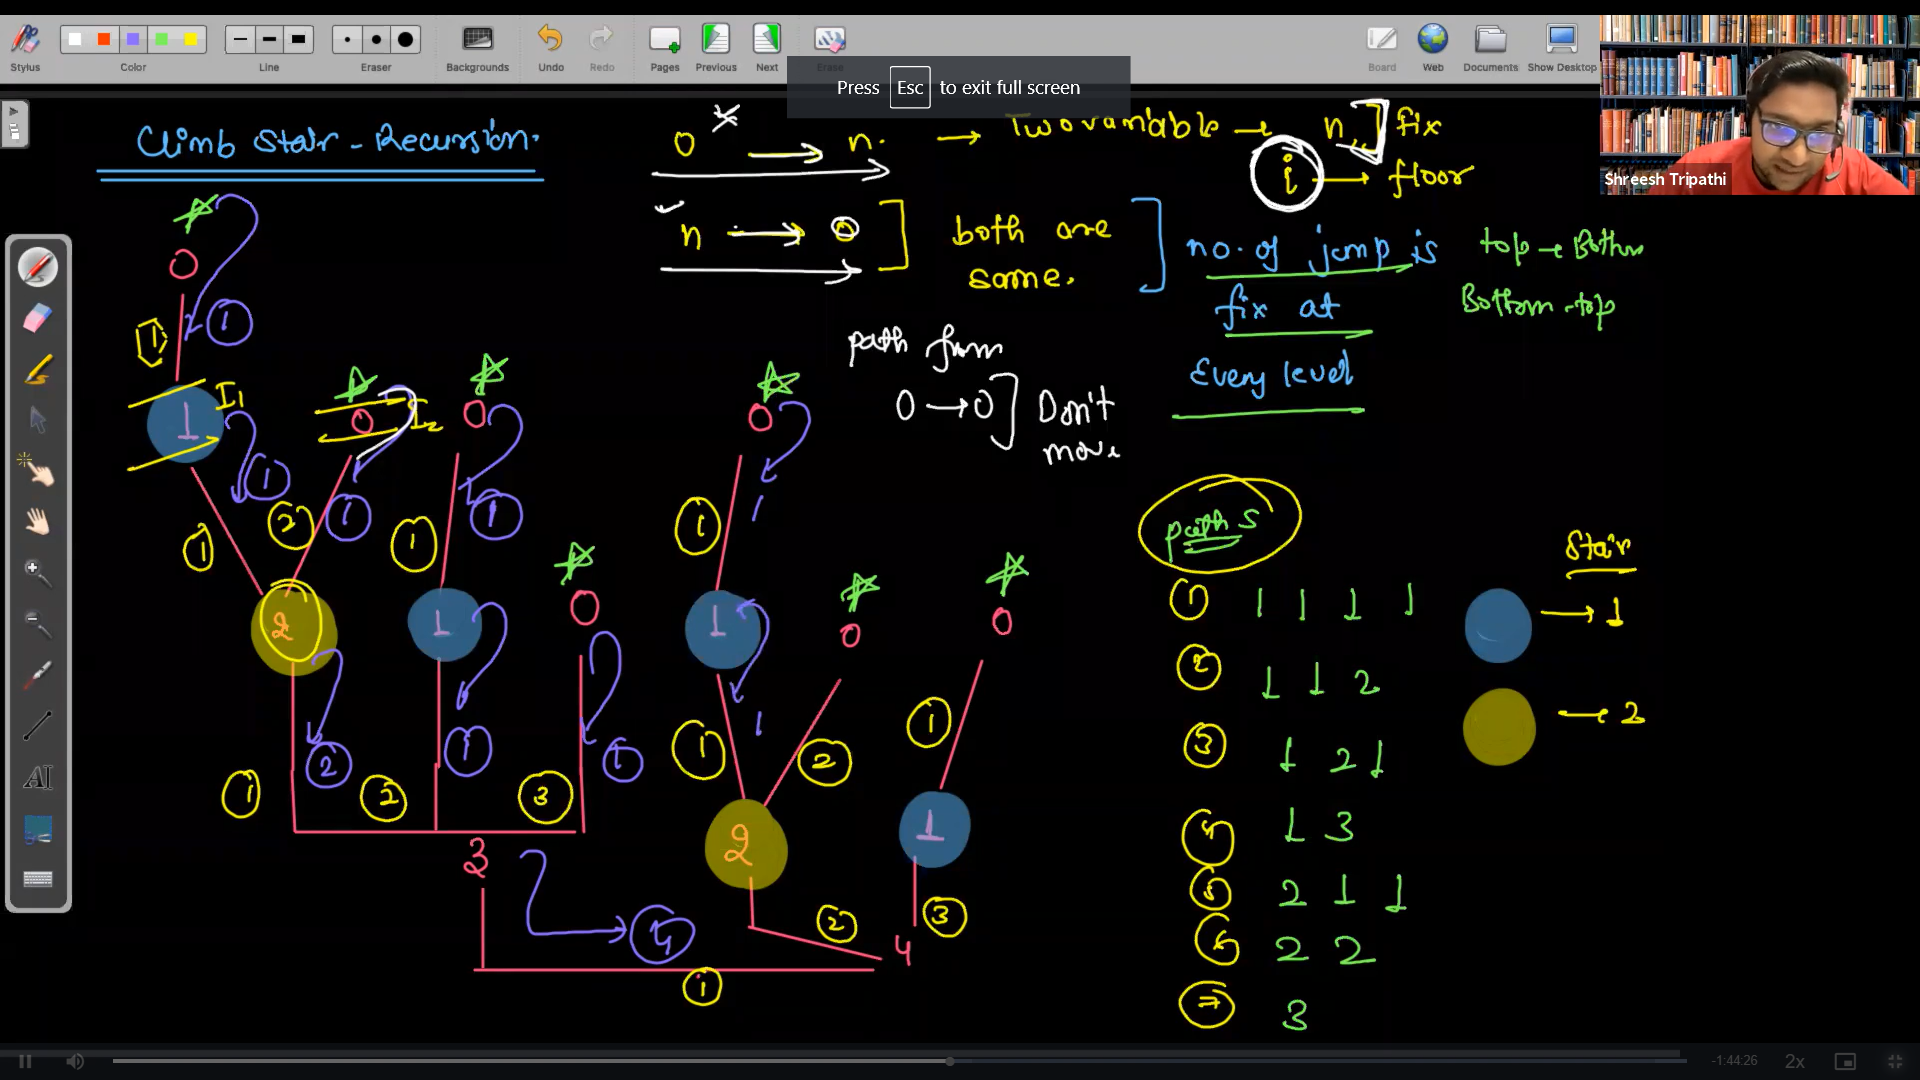 Stylus
Color
Line
Eraser
Backgrounds
Undo
Redo
Pages
Previous
Next
Erase
Board
Web
Documents
Show Desktop
Press Esc to exit full screen
Shreesh Tripathi
Climb Stair - Recursion.
0 → n. → Two variable → n, fix
i → floor
n → 0 both are same.
no. of jump is fix at Every level
top → Bottom
Bottom - top
path from
0 → 0 Don't move
0
1 2 1
1 I1 0 I2 0 0
1 1 2 1 1 1 1 1
2 1 0 1 0 0
1 2 2 1 3 1 1 1 2 1
3 2 1
4 2 3
4
1
paths
Stair
→ 1
→ 2
1 1 1 1 1
2 1 1 2
3 1 2 1
4 1 3
5 2 1 1
6 2 2
7 3
AI
-1:44:26
2x